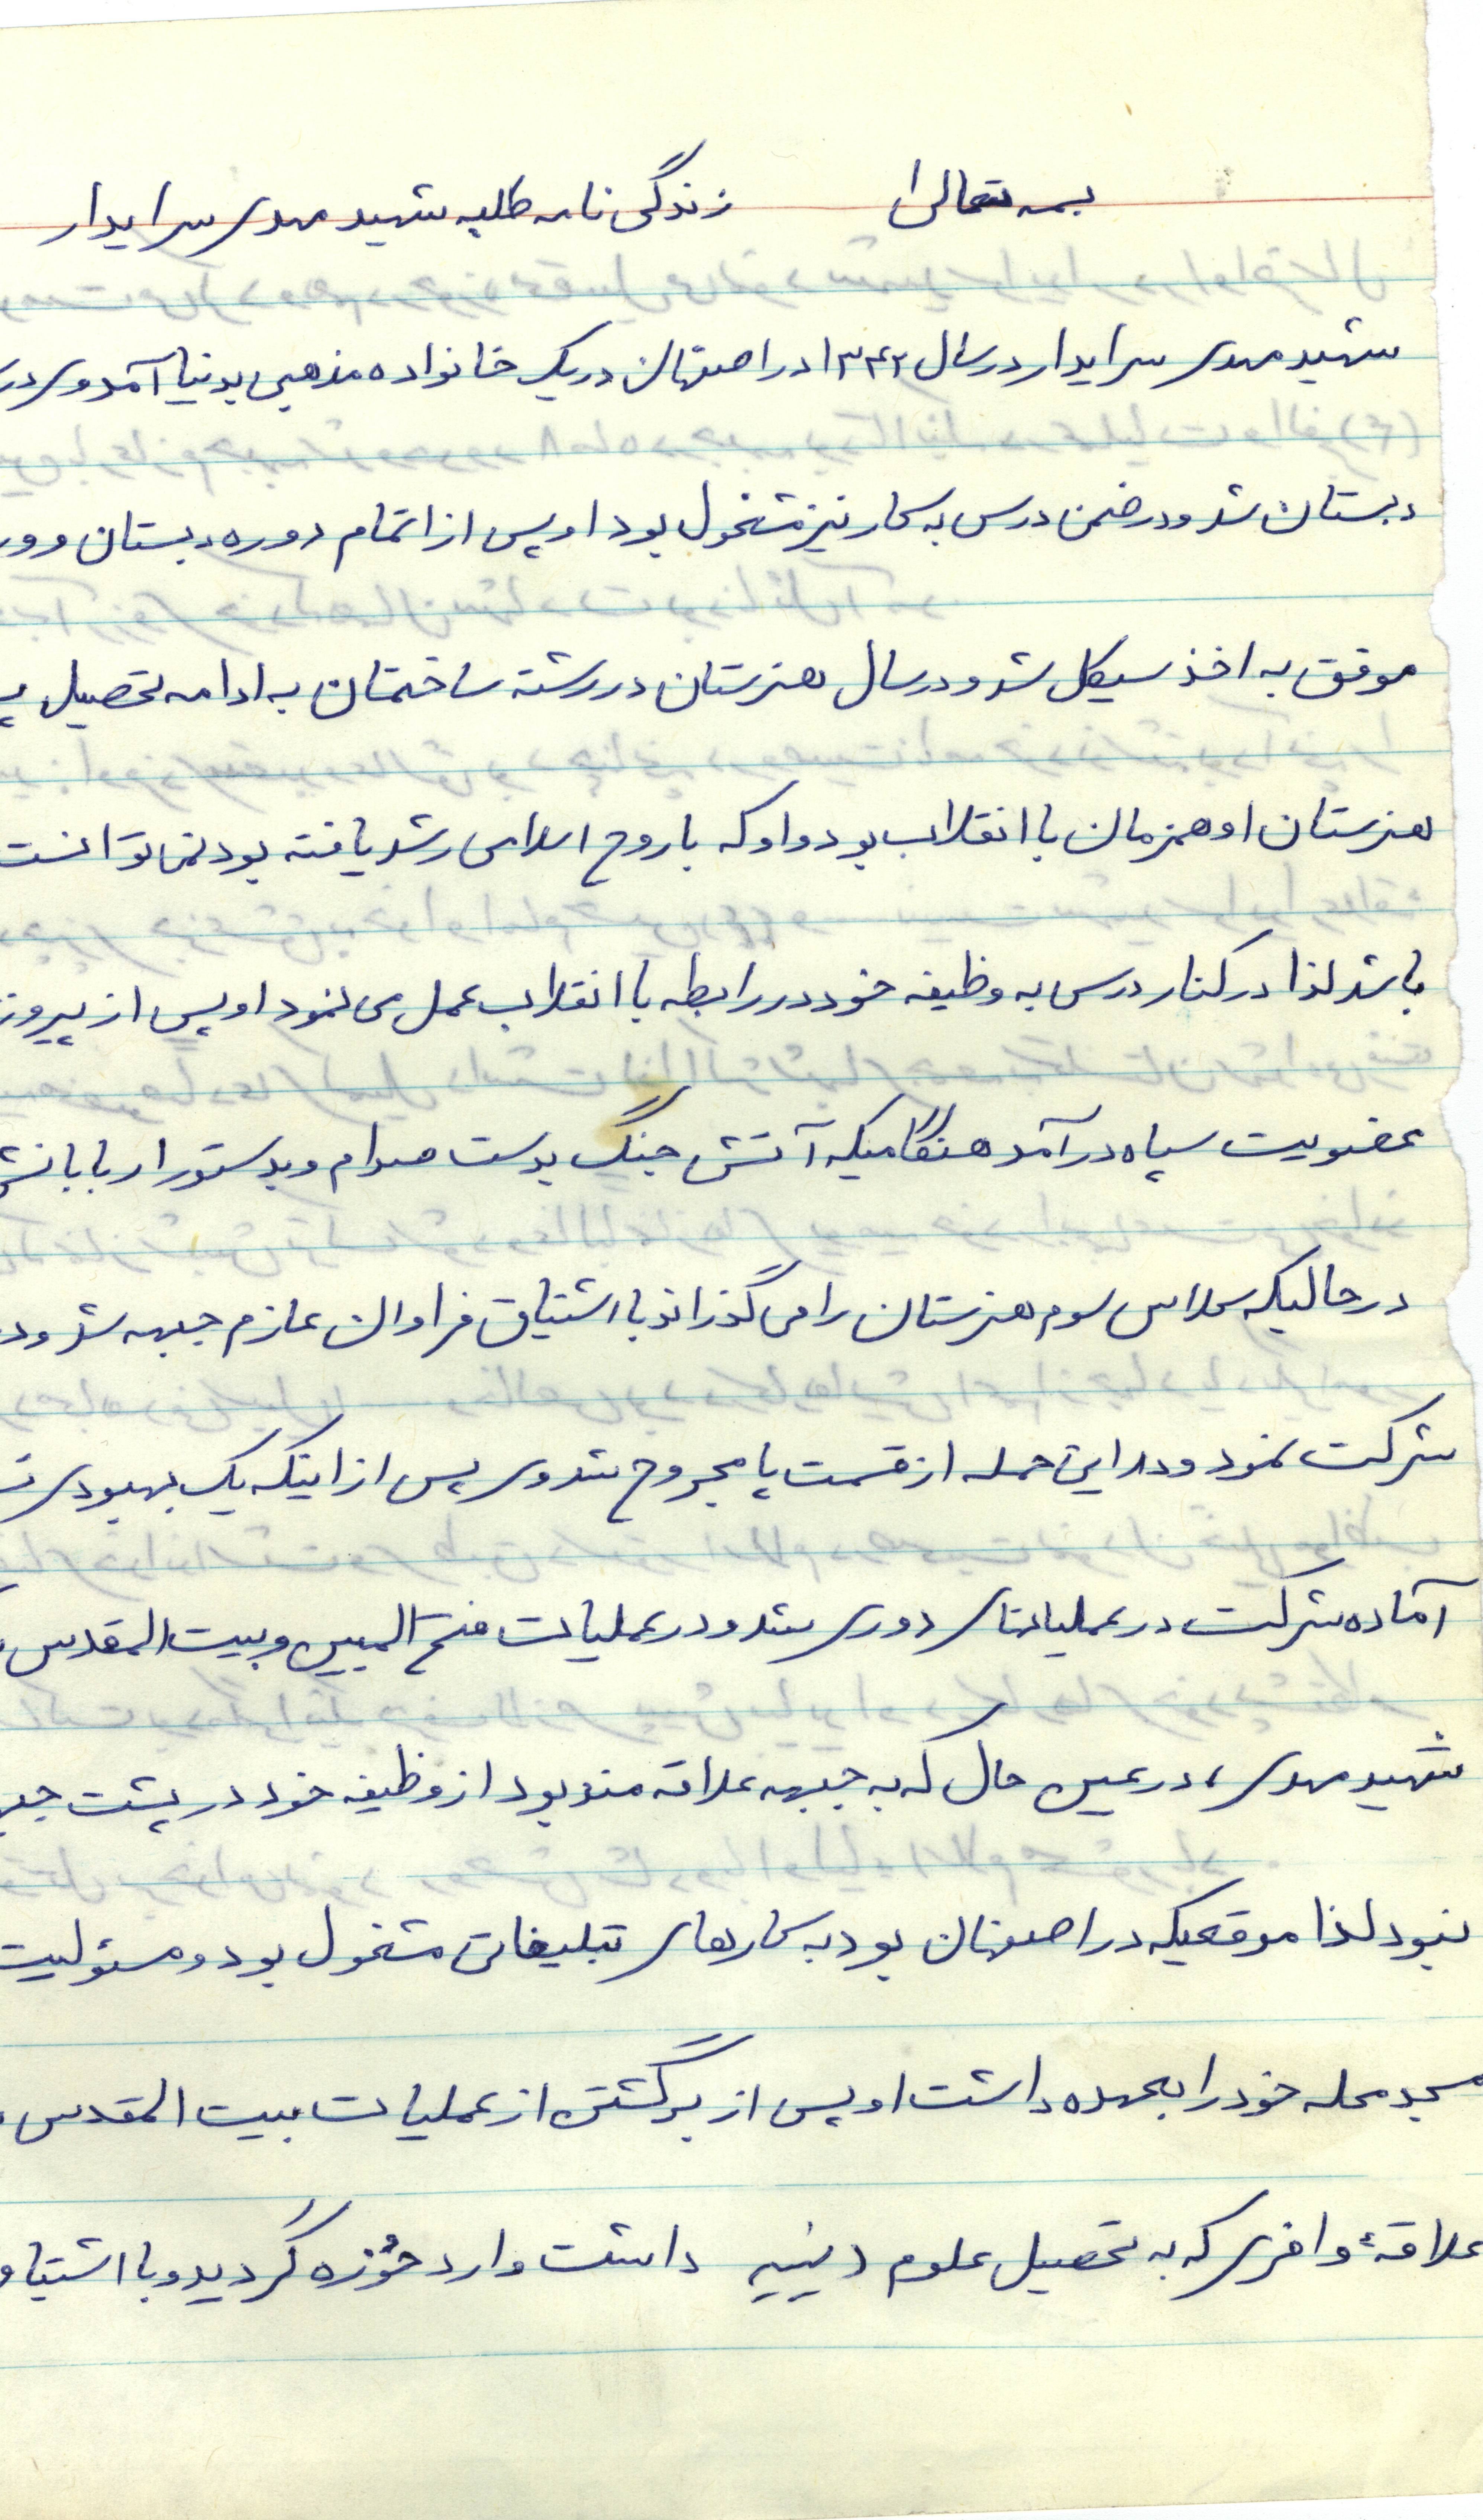 بسمه تعالی زندگی نامه طلبه شهید مهدی سرایدار
شهید مهدی سرایدار در سال ۱۳۴۲ در اصفهان در یک خانواده مذهبی بدنیا آمد وی در
دبستان شد و در ضمن درس به کار نیز مشغول بود او پس از اتمام دوره دبستان وور
موفق به اخذ سیکل شد و در سال هنرستان در رشته ساختمان به ادامه تحصیل
هنرستان او همزمان با انقلاب بود و او که با روح اسلامی رشد یافته بود نمی توانست
باشد لذا در کنار درس به وظیفه خود در رابطه با انقلاب عمل می نمود او پس از پیروز
عضویت سپاه درآمد هنگامیکه آتش جنگ بدست صدام و بدستور اربابانش
در حالیکه کلاس سوم هنرستان را می گذراند با اشتیاق فراوان عازم جبهه شد و د
شرکت نمود و در این حمله از قسمت پا مجروح شد وی پس از اینکه یک بهبودی
آماده شرکت در عملیاتهای دوری شد و در عملیات فتح المبین و بیت المقدس
شهید مهدی، در عین حال که به جبهه علاقه مند بود از وظیفه خود در پشت جبه
نبود لذا موقعیکه در اصفهان بود به کارهای تبلیغاتی مشغول بود و مسئولیت
مسجد محله خود را بعهده داشت او پس از برگشتن از عملیات بیت المقدس
علاقهٔ وافری که به تحصیل علوم دینیه داشت وارد حوزه گردید و با اشتیا